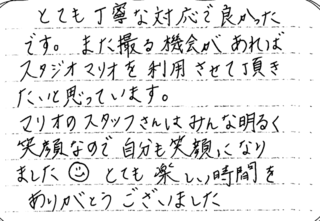 とても丁寧な対応で良かった
です。また撮る機会があれば
スタジオマリオを利用させて頂き
たいと思っています。
マリオのスタッフさんはみんな明るく
笑顔なので自分も笑顔になり
ました☺とても楽しい時間を
ありがとうございました